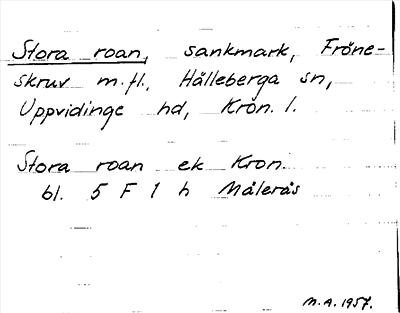 Stora roan, sankmark, Fröne-
skruv m.fl., Hälleberga sn,
Uppvidinge hd, Kron. l.
Stora roan ek Kron.
bl. 5 F 1 h Målerås
M.A. 1957.